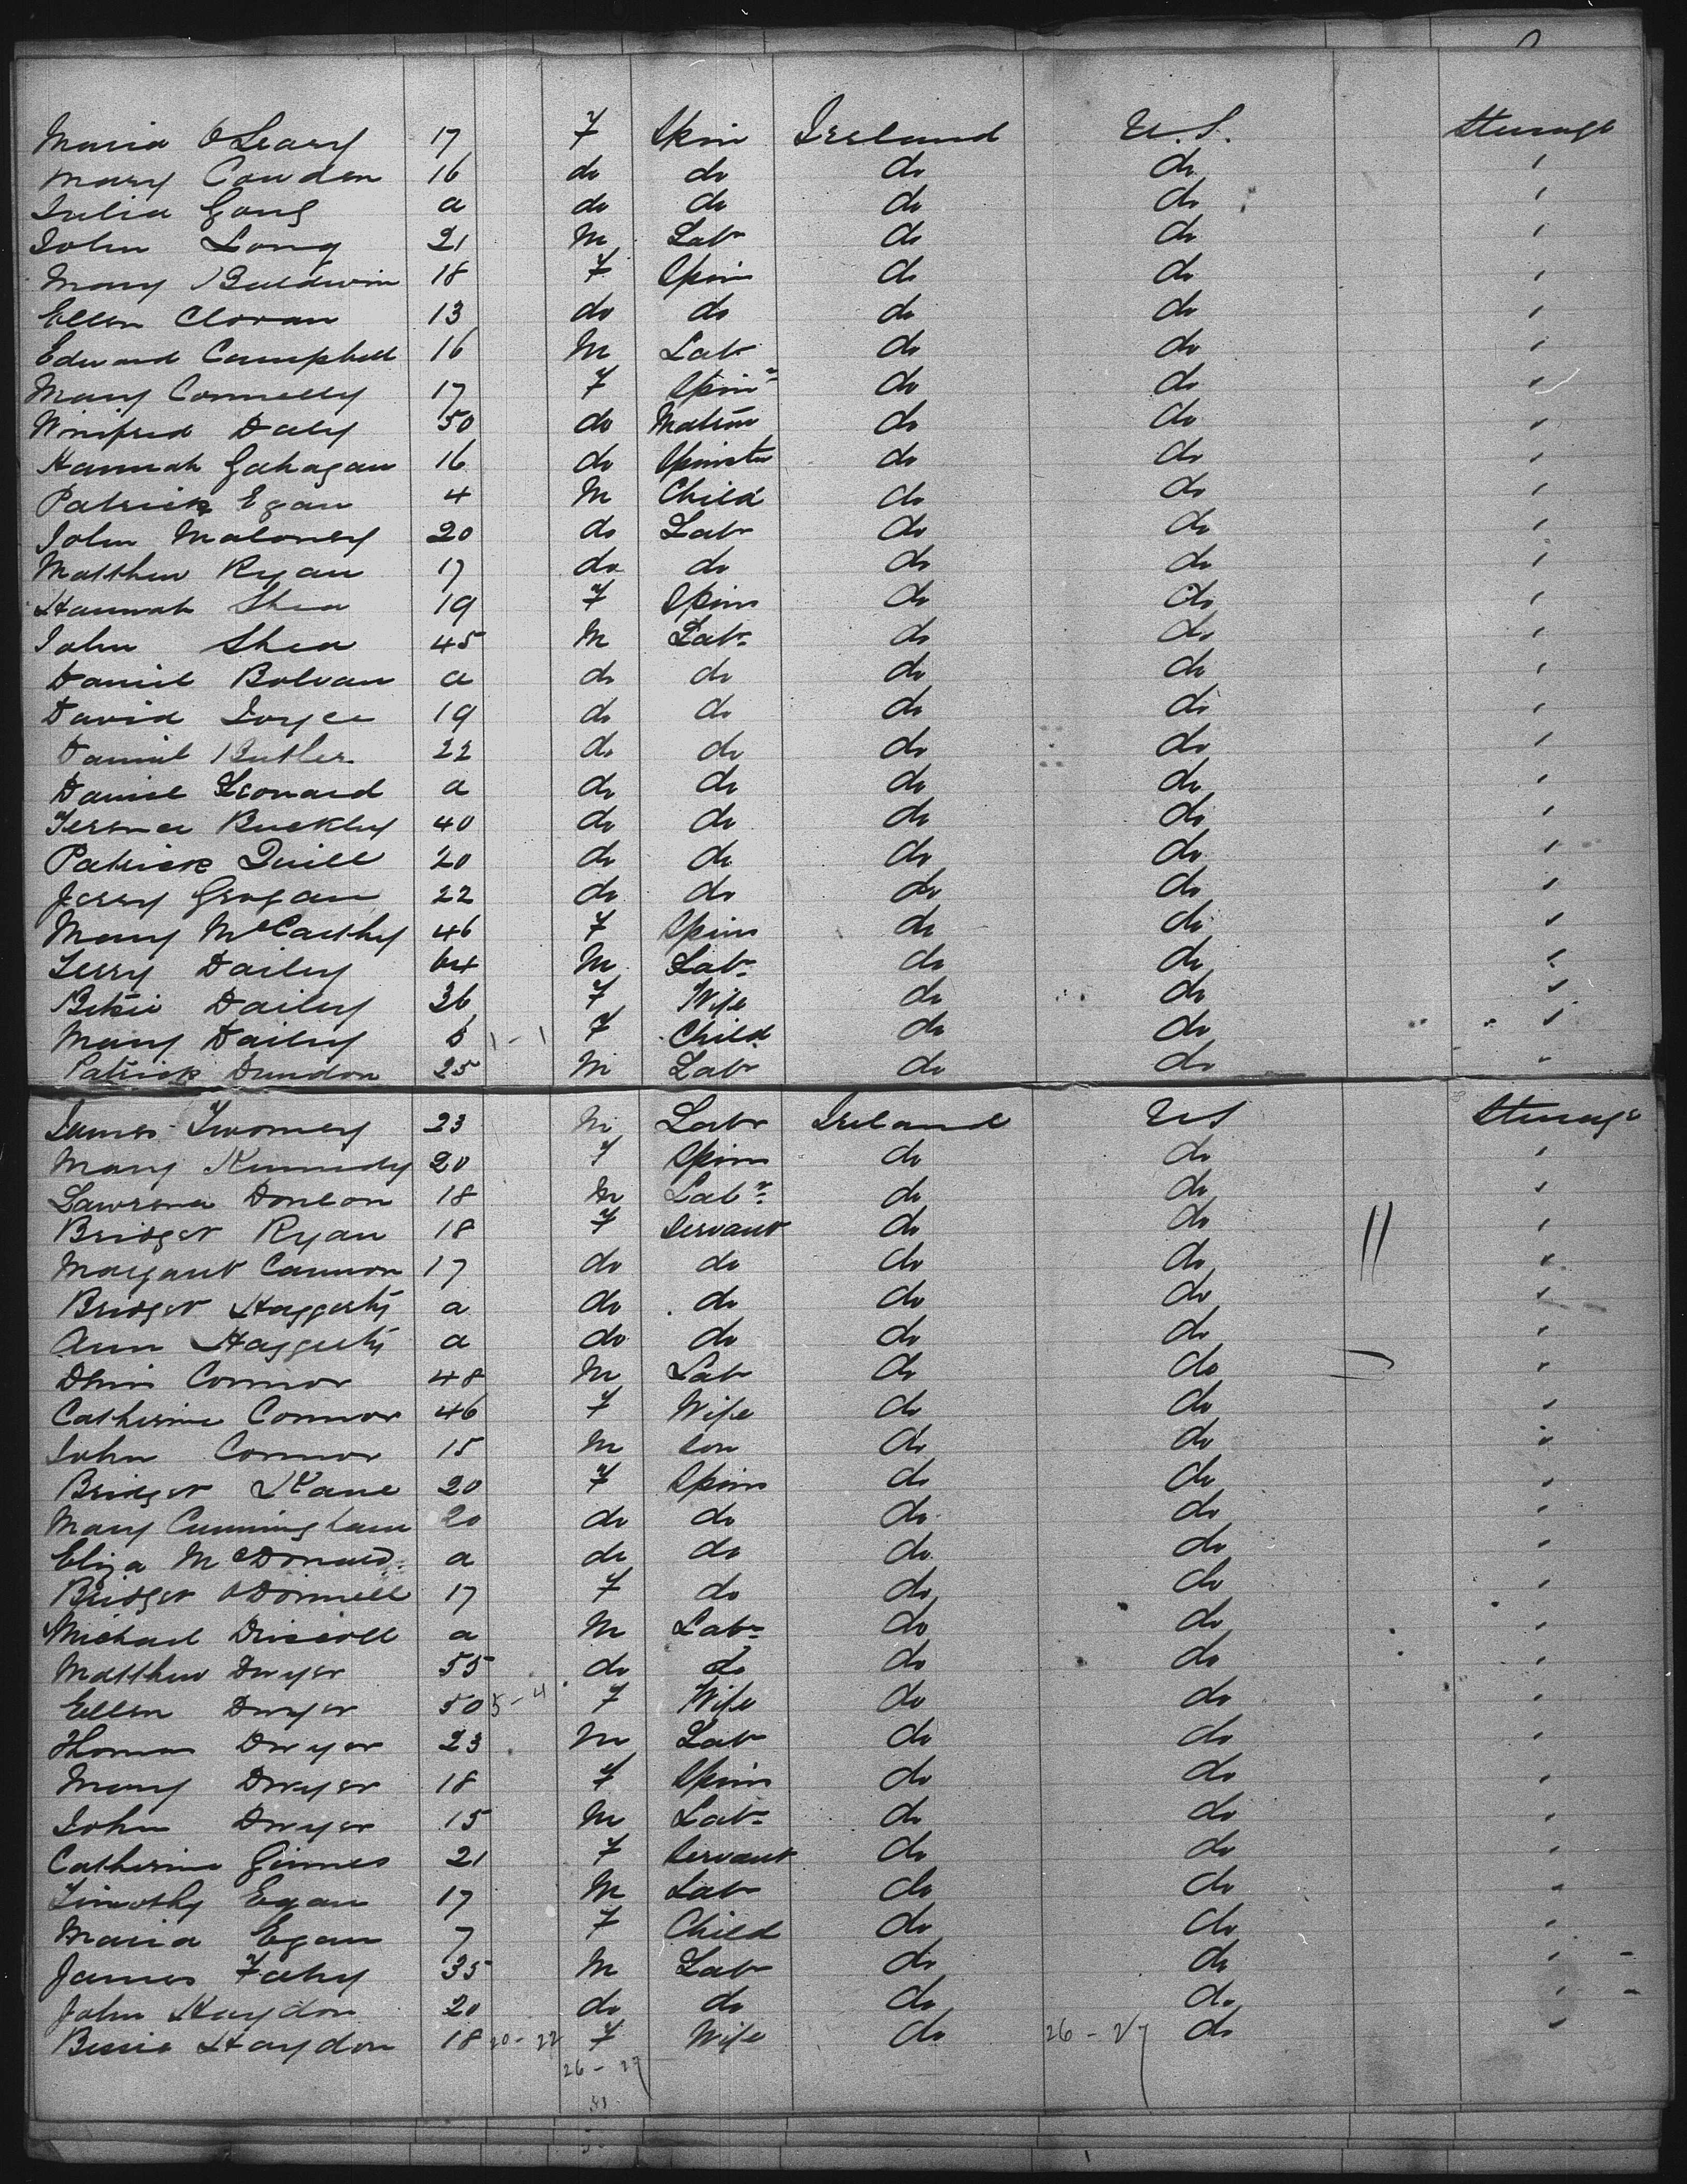 Maria O'Leary 17 F Spin Ireland U.S. Steerage
Mary Cowden 16 do do do do "
Julia Gong a do do do do "
John Long 21 M Lab do do "
Mary Baldwin 18 F Spin do do "
Ellen Cloran 13 do do do do "
Edward Campbell 16 M Lab do do "
Mary Connelly 17 F Spinr do do "
Winifred Daly 50 do Matron do do "
Hannah Gahagan 16 do Spinster do do "
Patrick Egan 4 M Child do do "
John Maloney 20 do Lab do do "
Matthew Ryan 17 do do do do "
Hannah Shea 19 F Spins do do "
John Shea 45 M Lab do do "
Daniel Bolvan a do do do do "
David Joyce 19 do do do do "
Daniel Butler 22 do do do do "
Daniel Leonard a do do do do "
Terence Buckley 40 do do do do "
Patrick Quill 20 do do do do "
Jerry Grogan 22 do do do do "
Mary McCarthy 46 F Spins do do "
Jerry Dailey 64 M Lab do do "
Betsie Dailey 36 F Wife do do "
Mary Dailey 5 1 - 1 F Child do do "
Patrick Dundon 25 M Lab do do "
James Twomey 23 M Labr Ireland US Steerage
Mary Kennedy 20 F Spins do do "
Lawrence Donlon 18 M Labr do do "
Bridget Ryan 18 F Servant do do "
Margaret Cannon 17 do do do do "
Bridget Haggerty a do do do do "
Ann Haggerty a do do do do "
Denis Connor 48 M Lab do do "
Catherine Connor 46 F Wife do do "
John Connor 15 M Son do do "
Bridget Kane 20 F Spins do do "
Mary Cunningham 20 do do do do "
Eliza McDonald a do do do do "
Bridget O'Donnell 17 F do do do "
Michael Driscoll a M Lab do do "
Matthew Dwyer 55 do do do do "
Ellen Dwyer 50 5 - 4 F Wife do do "
Thomas Dwyer 23 M Lab do do "
Mary Dwyer 18 F Spins do do "
John Dwyer 15 M Lab do do "
Catherine Ginnes 21 F Servant do do "
Timothy Egan 17 M Lab do do "
Maria Egan 7 F Child do do "
James Fahy 35 M Lab do do "
John Haydon 20 do do do do "
Bessie Haydon 18 20 - 22 F Wife do 26 - 27 do "
26 - 27